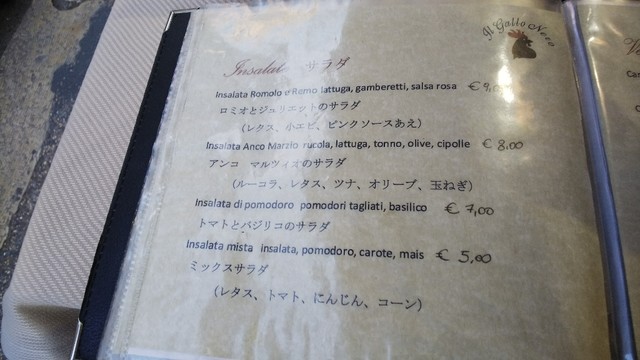 Il Gallo Nero
Insalate サラダ
Insalata Romolo e Remo lattuga, gamberetti, salsa rosa € 9,00
ロミオとジュリエットのサラダ
（レタス、小エビ、ピンクソースあえ）
Insalata Anco Marzio rucola, lattuga, tonno, olive, cipolle € 8,00
アンコ マルツィオのサラダ
（ルーコラ、レタス、ツナ、オリーブ、玉ねぎ）
Insalata di pomodoro pomodori tagliati, basilico € 7,00
トマトとバジリコのサラダ
Insalata mista insalata, pomodoro, carote, mais € 5,00
ミックスサラダ
（レタス、トマト、にんじん、コーン）